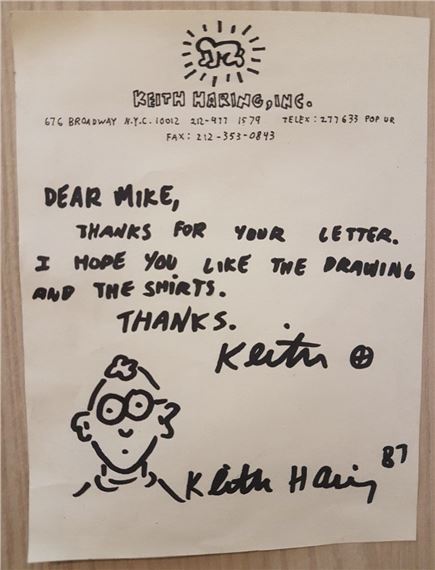 KEITH HARING, INC.
676 BROADWAY N.Y.C. 10012 212-477 1579 TELEX: 277633 POP UR
FAX: 212-353-0843
DEAR MIKE,
THANKS FOR YOUR LETTER.
I HOPE YOU LIKE THE DRAWING
AND THE SHIRTS.
THANKS.
Keith
Keith Haring 87